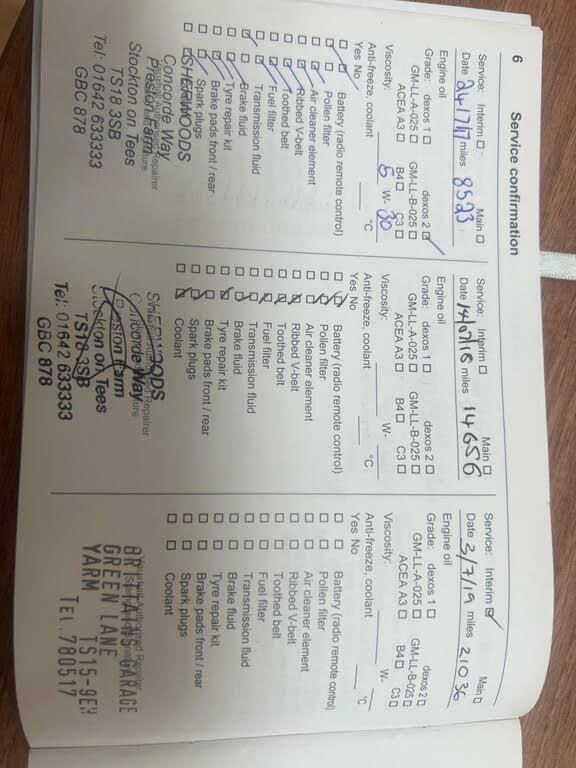 6
Service confirmation
Service: Interim Main
Date 24/7/17 miles 8523
Engine oil
Grade: dexos 1 dexos 2
GM-LL-A-025 GM-LL-B-025
ACEA A3 B4 C3
Viscosity: 5 W- 30
Anti-freeze, coolant °C
Yes No
Battery (radio remote control)
Pollen filter
Air cleaner element
Ribbed V-belt
Toothed belt
Fuel filter
Transmission fluid
Brake fluid
Tyre repair kit
Brake pads front / rear
Spark plugs
SHERWOODS
Concorde Way
Preston Farm
Stockton on Tees
TS18 3SB
Tel: 01642 633333
GBC 878
Service: Interim Main
Date 14/07/18 miles 14656
Engine oil
Grade: dexos 1 dexos 2
GM-LL-A-025 GM-LL-B-025
ACEA A3 B4 C3
Viscosity: W-
Anti-freeze, coolant °C
Yes No
Battery (radio remote control)
Pollen filter
Air cleaner element
Ribbed V-belt
Toothed belt
Fuel filter
Transmission fluid
Brake fluid
Tyre repair kit
Brake pads front / rear
Spark plugs
Coolant
SHERWOODS
Concorde Way
Preston Farm
Stockton on Tees
TS18 3SB
Tel: 01642 633333
GBC 878
Service: Interim Main
Date 3/7/19 miles 21036
Engine oil
Grade: dexos 1 dexos 2
GM-LL-A-025 GM-LL-B-025
ACEA A3 B4 C3
Viscosity: W-
Anti-freeze, coolant °C
Yes No
Battery (radio remote control)
Pollen filter
Air cleaner element
Ribbed V-belt
Toothed belt
Fuel filter
Transmission fluid
Brake fluid
Tyre repair kit
Brake pads front / rear
Spark plugs
Coolant
Authorised Repairer
GARAGE
GREEN LANE
YARM TS15-9EH
TEL. 780517